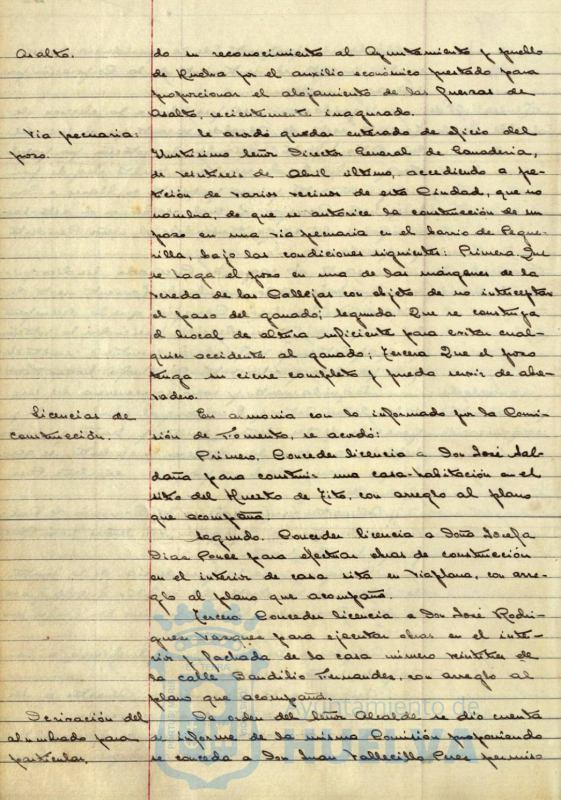 Asalto.
do su reconocimiento al Ayuntamiento y pueblo
de Huelva por el auxilio económico prestado para
proporcionar el alojamiento de las Fuerzas de
Asalto, recientemente inagurado.
Via pecuaria:
pozo.
Se acordó quedar enterado de oficio del
Ilustrísimo Señor Director General de Ganadería,
de veintseis de Abril último, accediendo a pe-
tición de varios vecinos de esta Ciudad, que no
nombra, de que se autorice la construcción de un
pozo en una via pecuaria en el barrio de Pegue-
rilla, bajo las condiciones siguientes: Primera. Que
se haga el pozo en una de las márgenes de la
vereda de las Callejas con objeto de no interceptar
el paso del ganado; segunda Que se construya
el brocal de altura suficiente para evitar cual-
quier accidente al ganado; tercera Que el pozo
tenga su cierre completo y pueda servir de abre-
vadero.
Licencias de
construcción.
En armonia con lo informado por la Comi-
sión de Fomento, se acordó:
Primero. Conceder licencia a Don José Sal-
daña para construir una casa-habitación en el
sitio del Huerto de Tito, con arreglo al plano
que acompaña.
Segundo. Conceder licencia a Doña Josefa
Diaz Ponce para efectuar obras de construcción
en el interior de casa sita en Viaplana, con arre-
glo al plano que acompaña.
Tercero. Conceder licencia a Don José Rodri-
guez Vazquez para ejecutar obras en el inte-
rior y fachada de la casa número veintitres de
la calle Baudilio Fernandez, con arreglo al
plano que acompaña.
Derivación del
alumbrado para
particular.
De orden del Señor Alcalde se dio cuenta
de informe de la misma Comisión proponiendo
se conceda a Don Juan Vallecillo Perez permiso
Ayuntamiento de
HUELVA